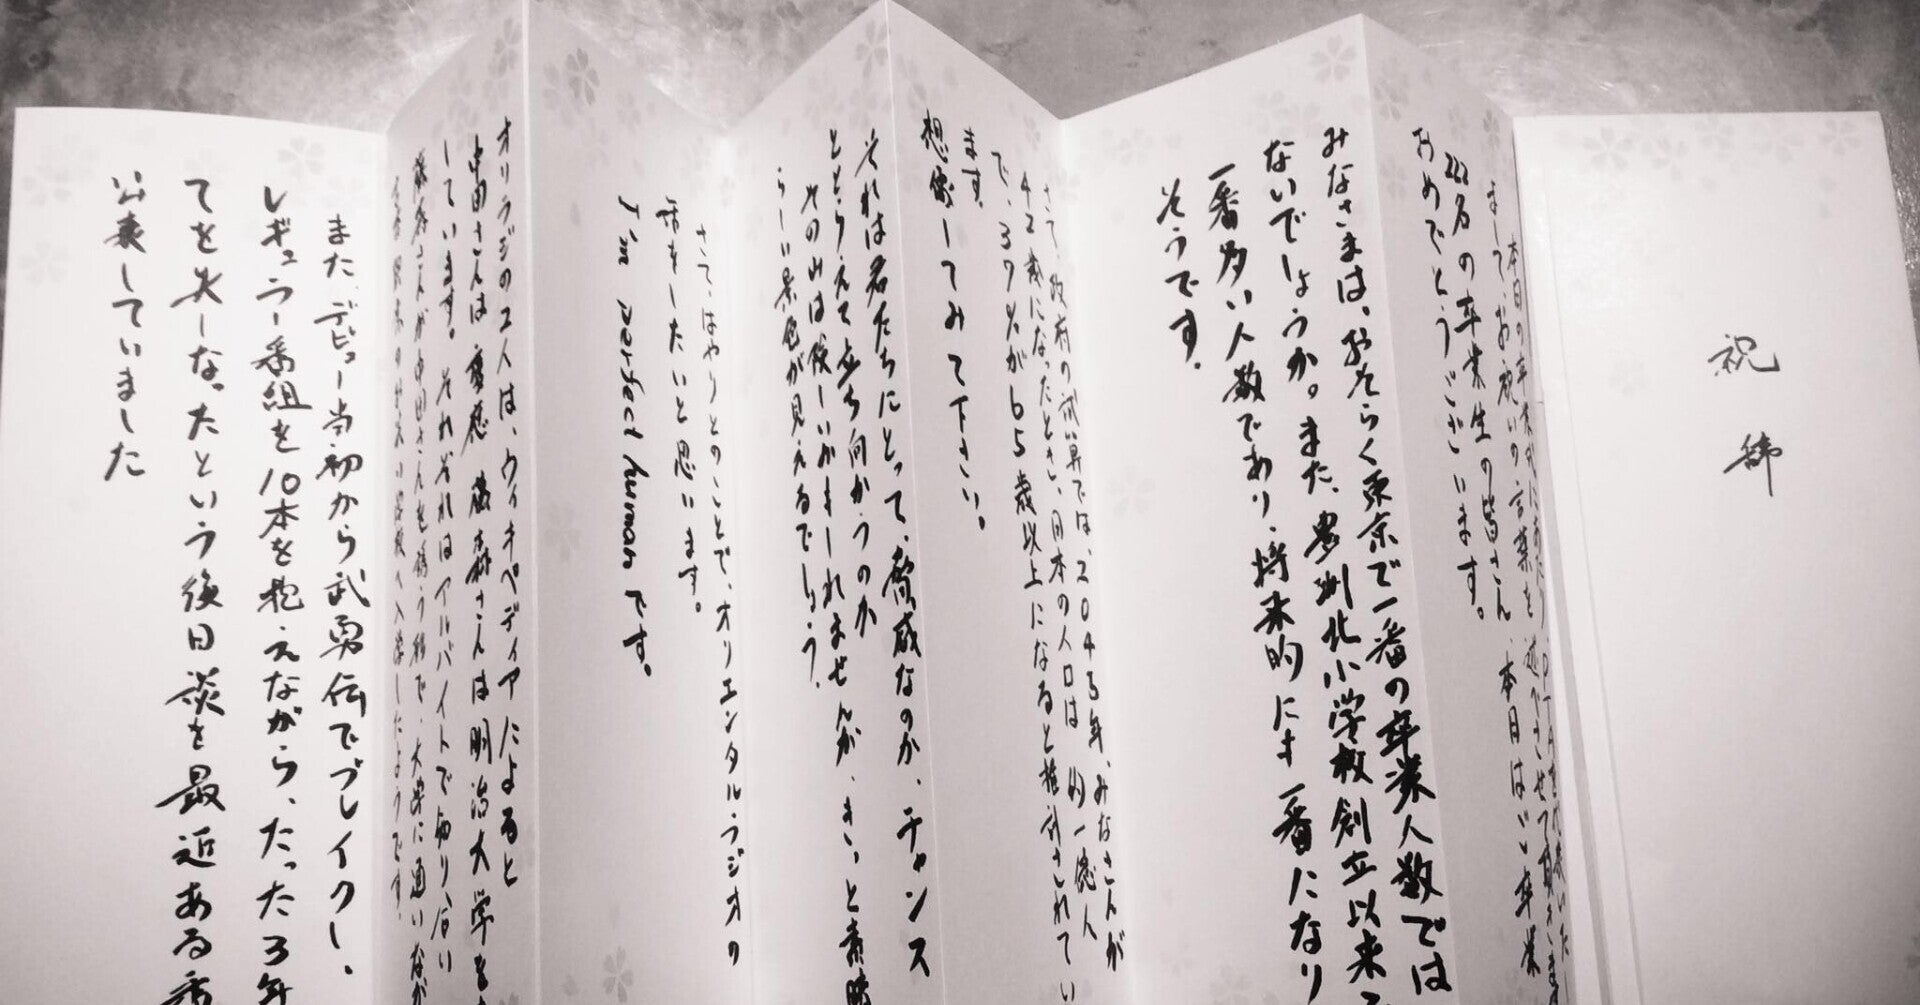 祝辞
本日の卒業式にあたり、PTAを代表いたし
まして、お祝いの言葉を述べさせて頂きま
222名の卒業生の皆さん、本日はご卒業
おめでとうございます。
みなさまは、おそらく東京で一番の卒業人数では
ないでしょうか。また、豊洲北小学校創立以来
一番多い人数であり、将来的にも一番になり
そうです。
さて、政府の試算では、2045年、みなさんが
42歳になったとき、日本の人口は約一億人
で、37%が65歳以上になると推計されてい
ます。
想像してみて下さい。
それは君たちにとって、脅威なのか、チャンス
ととらえて立ち向かうのか
その山は険しいかもしれませんが、きっと素晴
らしい景色が見えるでしょう。
さて、はやりとのことで、オリエンタル・ラジオの
話をしたいと思います。
I'm perfect humanです。
オリラジの2人は、ウィキペディアによると
中田さんは慶應 藤森さんは明治大学を
しています。それぞれはアルバイトで知り合い
藤森さんが中田さんを誘う形で、大学に通いなが
入学したようです。
また、デビュー当初から武勇伝でブレイクし、
レギュラー番組を10本を抱えながら、たった3年
てを失しなったという後日談を最近ある番
公表していました